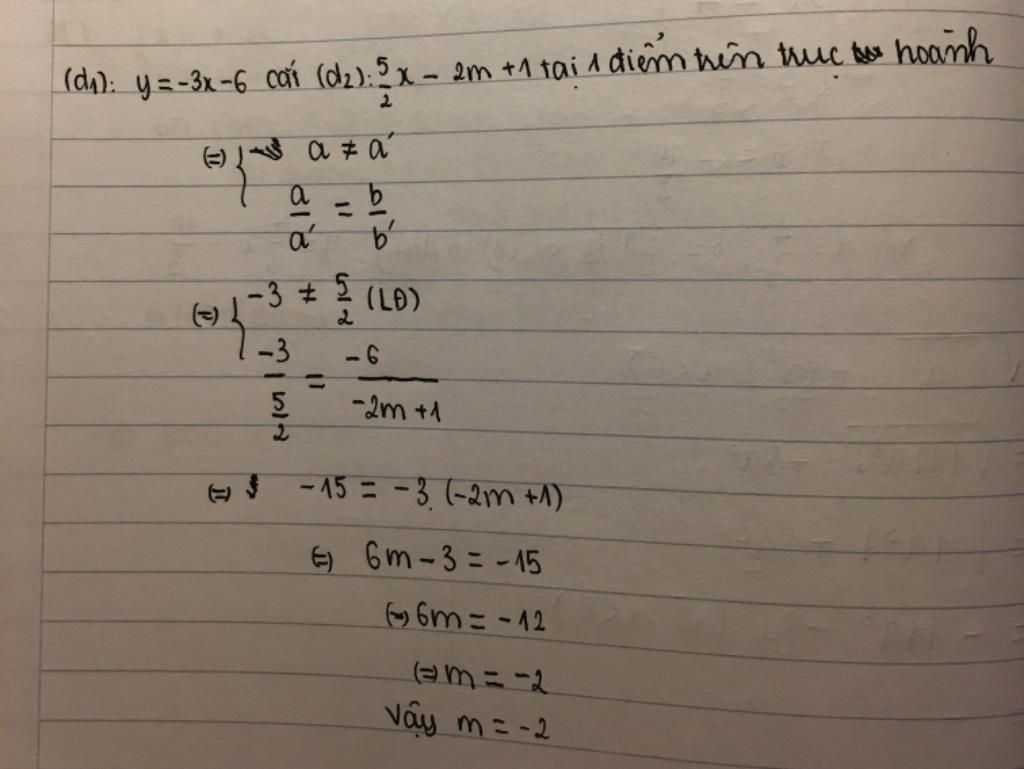 (d1): y = -3x - 6 cắt (d2): 5/2 x - 2m + 1 tại 1 điểm trên trục hoành
(=) { a ≠ a'
a/a' = b/b'
(=) { -3 ≠ 5/2 (LĐ)
-3/(5/2) = -6/(-2m + 1)
(=) -15 = -3. (-2m + 1)
(=) 6m - 3 = -15
(=) 6m = -12
(=) m = -2
Vậy m = -2